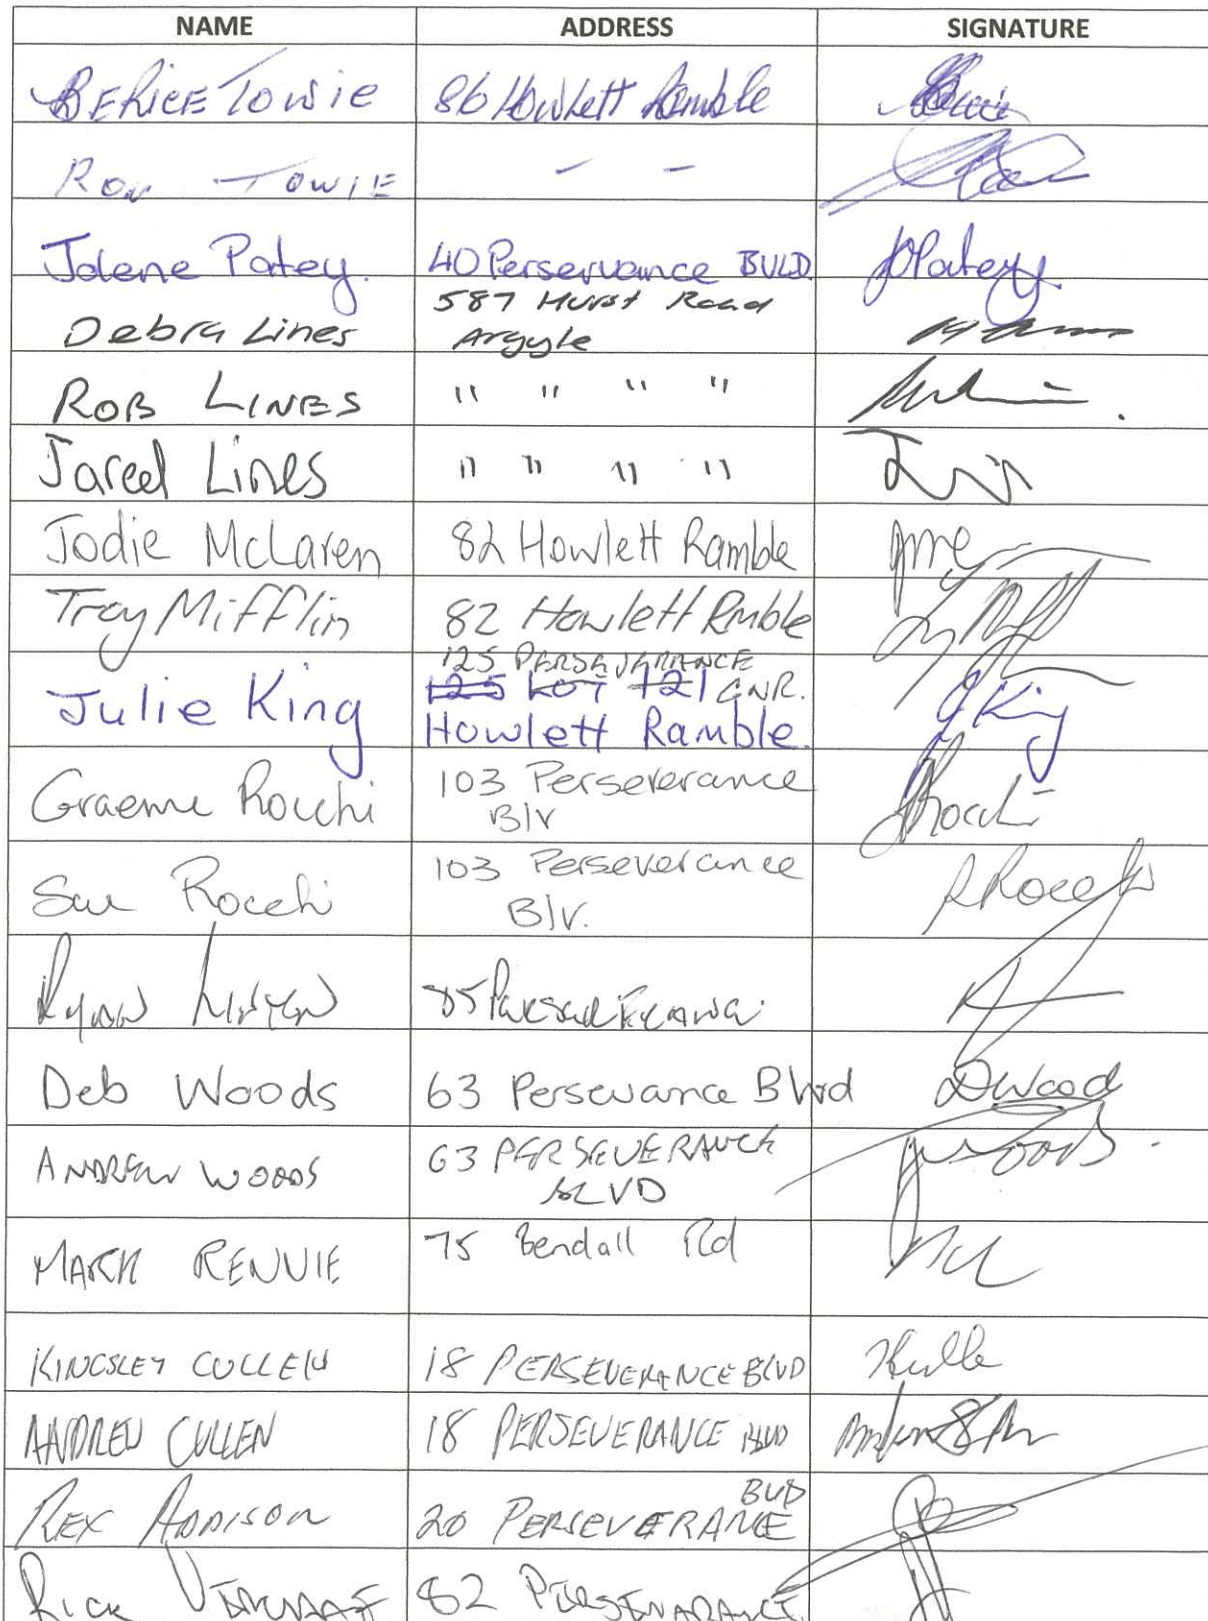 NAME ADDRESS SIGNATURE
BERICE TOWIE 86 Howlett Ramble
RON TOWIE - -
Jolene Patey. 40 Perservance BVLD. JPatey
Debra Lines 587 Hurst Road
Argyle
ROB LINES " " " "
Jared Lines " " " "
Jodie McLaren 82 Howlett Ramble
Troy Mifflin 82 Howlett Rmble
Julie King 125 PERSEVERANCE
125 LOT 121 CNR.
Howlett Ramble. JKing
Graeme Rocchi 103 Perseverance
Blv Rocchi
Sue Rocchi 103 Perseverance
Blv. SRocchi
Ryan 85
Deb Woods 63 Persevance Blvrd DWood
ANDREW WOODS 63 PERSEVERANCE
BLVD Woods
MARK RENNIE 75 Bendall Rd
KINGSLEY CULLEN 18 PERSEVERANCE BLVD
ANDREW CULLEN 18 PERSEVERANCE BLVD
REX ADDISON 20 PERSEVERANCE
BLVD
RICK 82 PERSEVARANCE